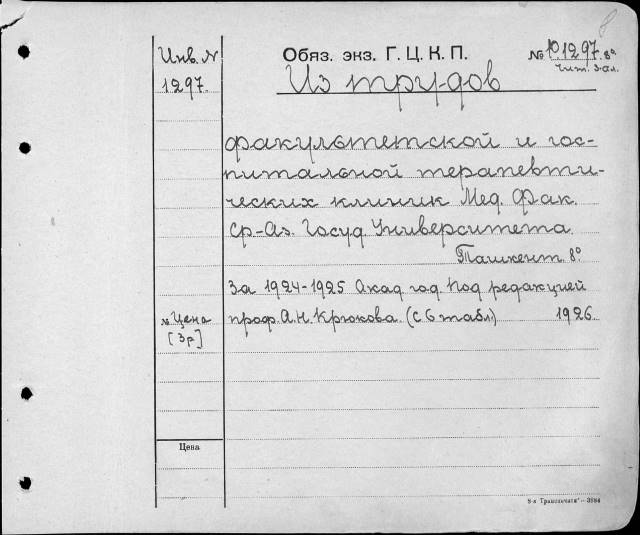 8
Инв. N
1297.
Обяз. экз. Г. Ц. К. П.
№ 10.1297. 8°
Чит. зал.
Из трудов
факультетской и гос-
питальной терапевти-
ческих клиник Мед. Фак.
Ср-Аз. Госуд. Университета.
Ташкент 8°
За 1924-1925 Акад год. Под редакцией
проф. А. Н. Крюкова. (с 6 табл.) 1926
Цена
[3 р]
Цена